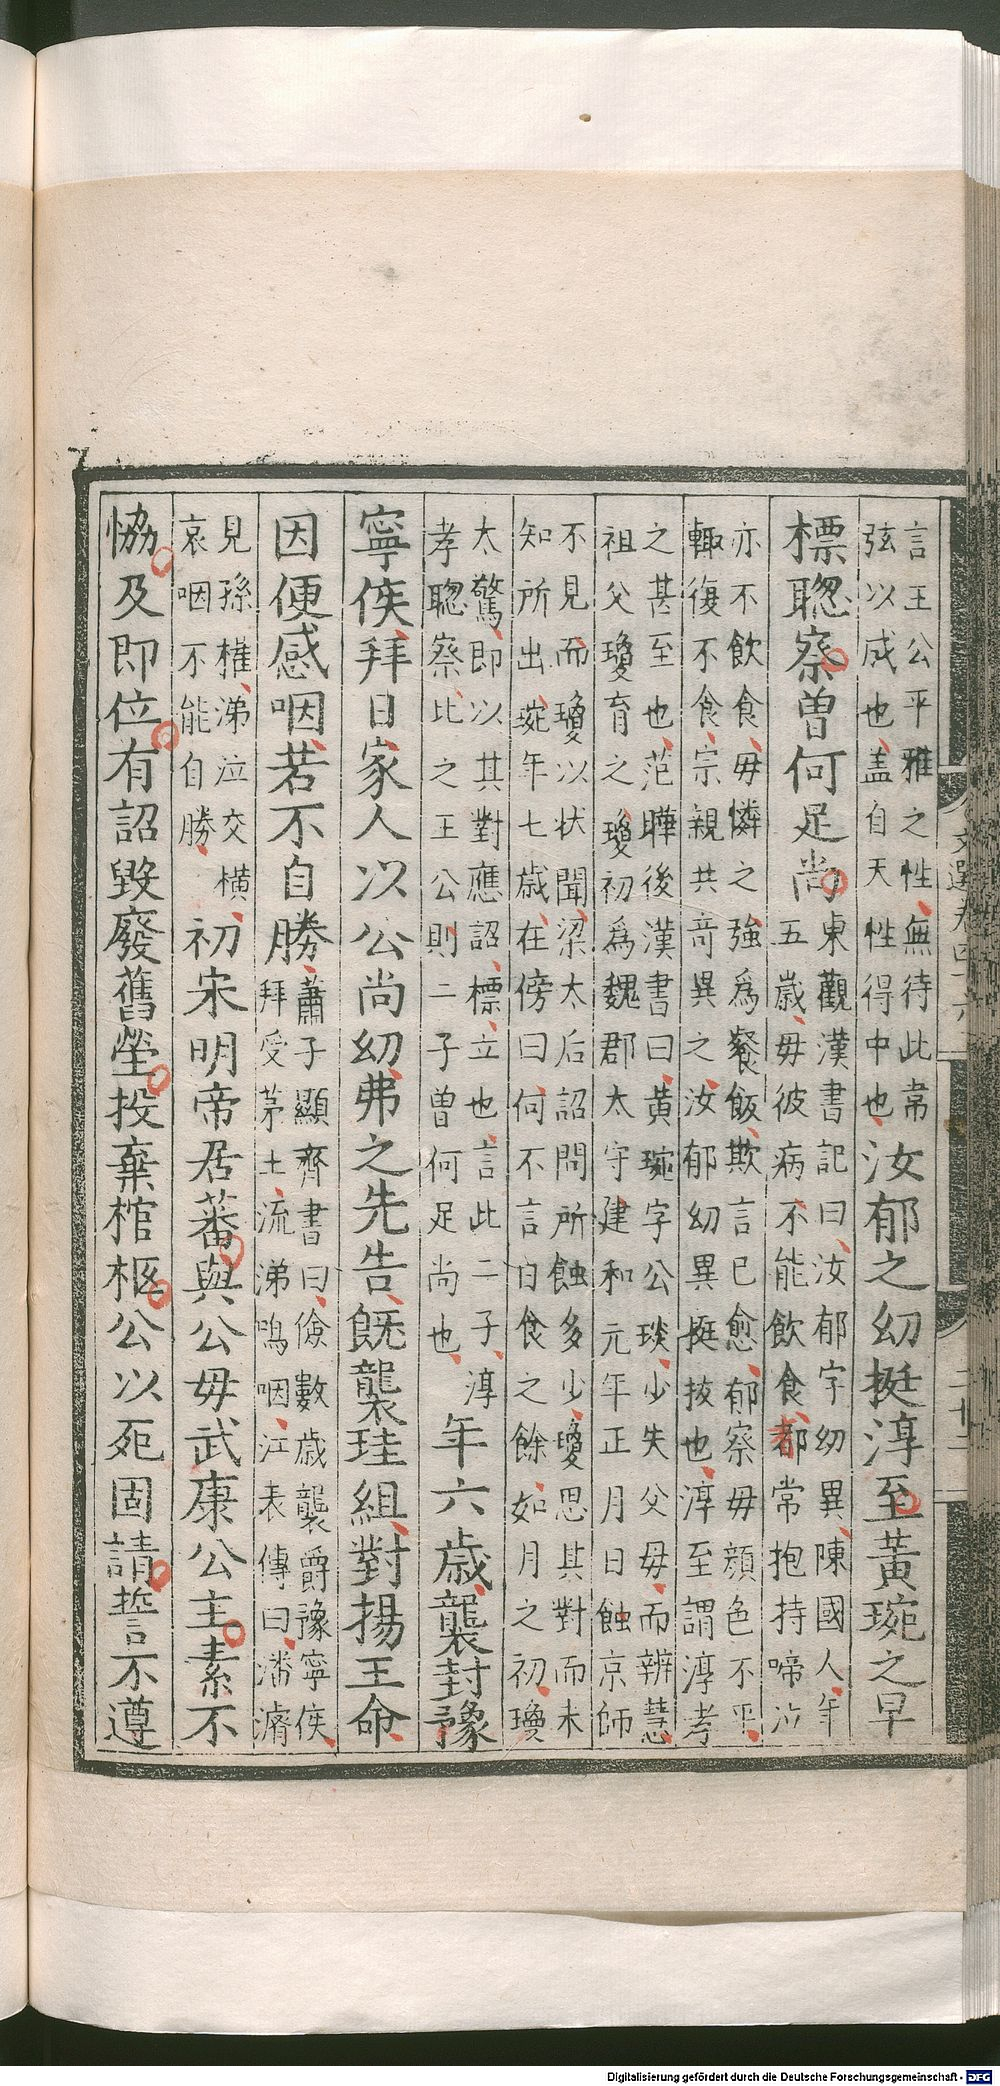 言王公平雅之性無待此韋
弦以成也盖自天性得中也汝郁之幼挺淳至黃琬之早
標聦察曽何足尚東觀漢書記曰汝郁字幼異陳國人年
五歳母彼病不能飲食郁常抱持啼泣
亦不飲食母憐之強爲餐飯欺言已愈郁察母顔色不平
輙復不食宗親共竒異之汝郁幼異挺拔也淳至謂淳孝
之甚至也范曄後漢書曰黃琬字公琰少失父母而辨慧
祖父瓊育之瓊初爲魏郡太守建和元年正月日蝕京師
不見而瓊以状聞梁太后詔問所蝕多少瓊思其對而未
知所出琬年七歳在傍曰何不言日食之餘如月之初瓊
太驚即以其對應詔標立也言此二子淳
孝聦察比之王公則二子曽何足尚也年六歳襲封豫
寧侯拜日家人以公尚幼弗之先告既襲珪組對揚王命
因便感咽若不自勝蕭子顯齊書曰儉數歳襲爵豫寧侯
拜受茅土流涕嗚咽江表傳曰潘濬
見孫權涕泣交横
哀咽不能自勝初宋明帝居蕃與公母武康公主素不
恊及即位有詔毀廢舊塋投棄棺柩公以死固請誓不遵
文選卷四十六
Digitalisierung gefördert durch die Deutsche Forschungsgemeinschaft - DFG